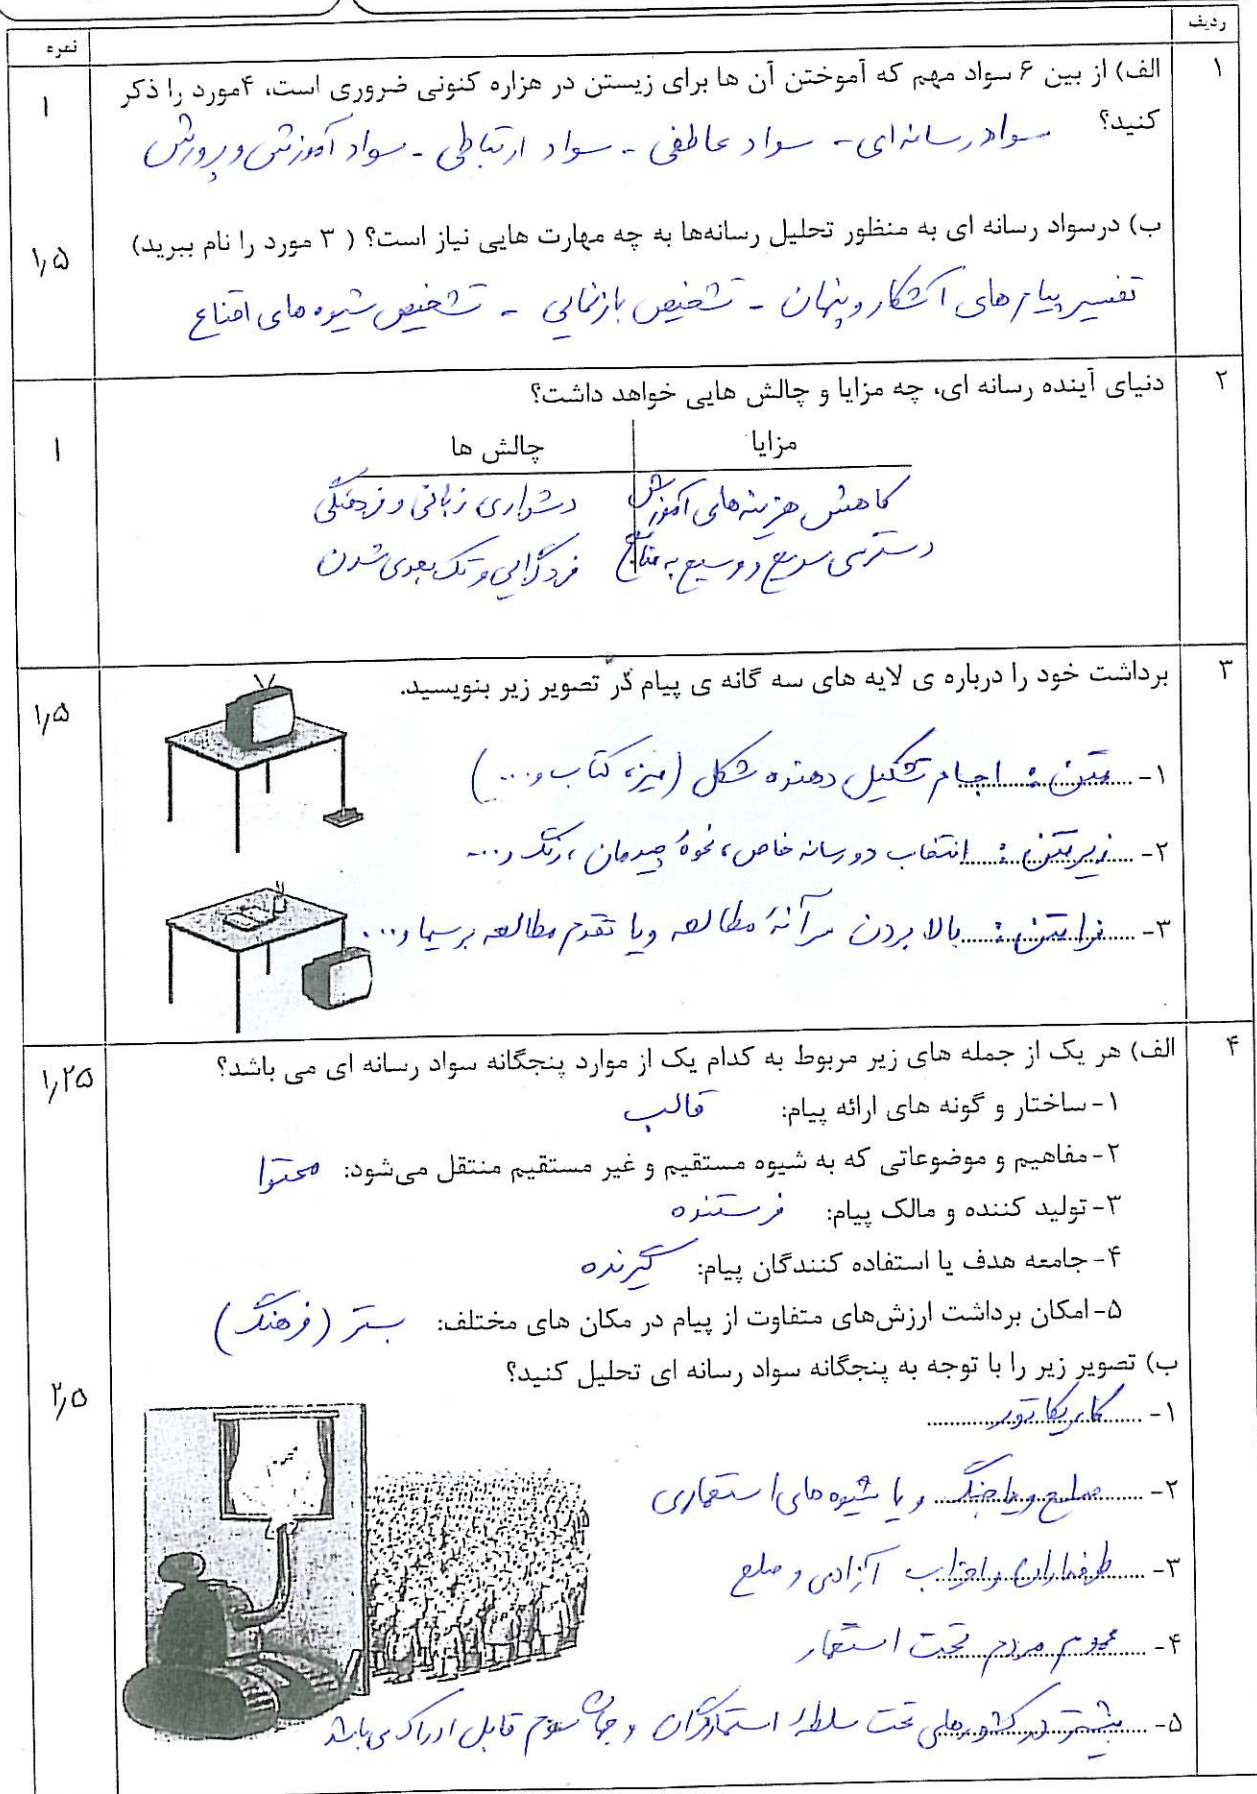 ردیف
نمره
۱
الف) از بین ۶ سواد مهم که آموختن آن ها برای زیستن در هزاره کنونی ضروری است، ۴مورد را ذکر
کنید؟
سواد رسانه‌ای - سواد عاطفی - سواد ارتباطی - سواد آموزش و پرورش
۱
ب) درسواد رسانه ای به منظور تحلیل رسانه‌ها به چه مهارت هایی نیاز است؟ ( ۳ مورد را نام ببرید)
تفسیر پیام های آشکار و پنهان - تشخیص بازنمایی - تشخیص شیوه های اقناع
۱٫۵
۲
دنیای آینده رسانه ای، چه مزایا و چالش هایی خواهد داشت؟
مزایا چالش ها
کاهش هزینه‌های آموزش دشواری زبانی و فرهنگی
دسترسی سریع و وسیع به منابع فردگرایی و تک بعدی شدن
۱
۳
برداشت خود را درباره ی لایه های سه گانه ی پیام در تصویر زیر بنویسید.
۱- متن : اجسام تشکیل دهنده شکل (میز، کتاب و ...)
۲- زیرمتن : انتخاب دو رسانه خاص، نحوهٔ چیدمان، رنگ و ...
۳- فرامتن : بالا بردن سرانهٔ مطالعه ویا تقدم مطالعه بر سیما و ...
۱٫۵
۴
الف) هر یک از جمله های زیر مربوط به کدام یک از موارد پنجگانه سواد رسانه ای می باشد؟
۱-ساختار و گونه های ارائه پیام: قالب
۲-مفاهیم و موضوعاتی که به شیوه مستقیم و غیر مستقیم منتقل می‌شود: محتوا
۳-تولید کننده و مالک پیام: فرستنده
۴-جامعه هدف یا استفاده کنندگان پیام: گیرنده
۵-امکان برداشت ارزش‌های متفاوت از پیام در مکان های مختلف: بستر (فرهنگ)
۱٫۲۵
ب) تصویر زیر را با توجه به پنجگانه سواد رسانه ای تحلیل کنید؟
۱- کاریکاتور
۲- صلح ویا جنگ و یا شیوه های استعماری
۳- طرفداران و احزاب آزادی و صلح
۴- عموم مردم تحت استعمار
۵- بیشتر در کشورهای تحت سلطهٔ استعمارگران و جهان سوم قابل ادراک می باشد
۲٫۵